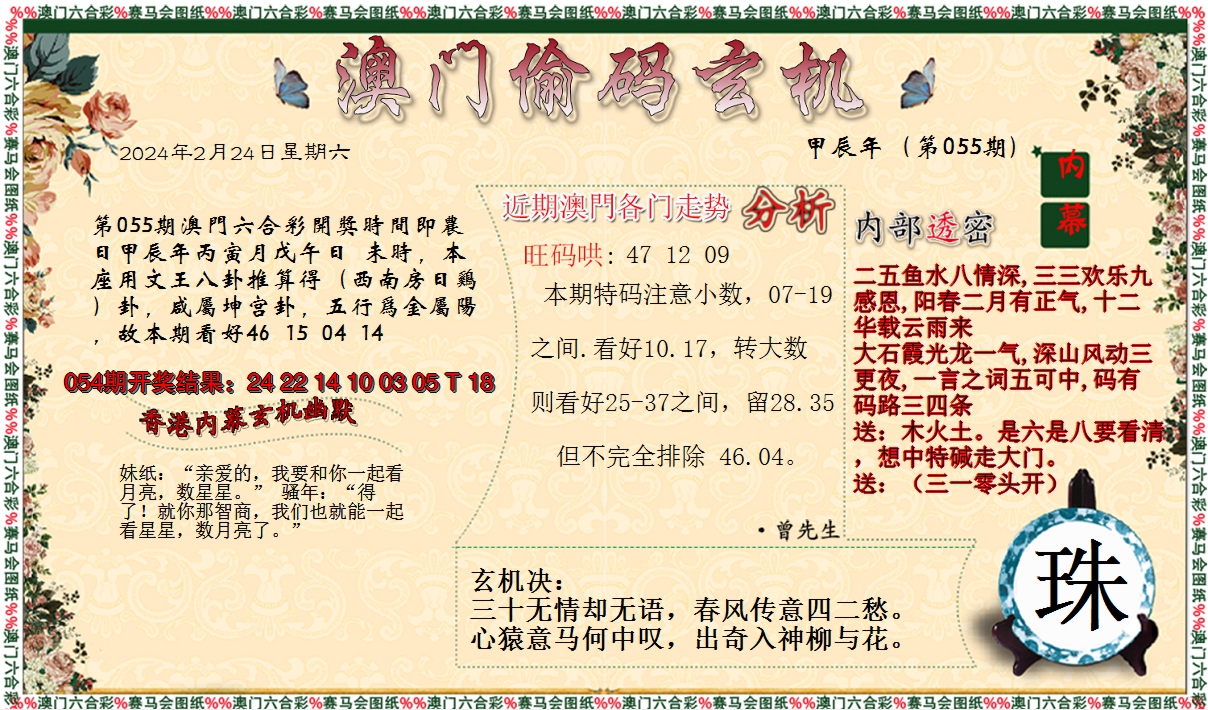 %%澳门六合彩%赛马会图纸%%澳门六合彩%赛马会图纸%%澳门六合彩%赛马会图纸%%澳门六合彩%赛马会图纸%%澳门六合彩%赛马会图纸%%澳门六合彩%赛马会图纸%%澳门六合彩%赛马会图纸%%
澳门偷码玄机
2024年2月24日星期六
甲辰年 (第055期)
内
幕
第055期澳門六合彩開獎時間即農
日甲辰年丙寅月戊午日 未時，本
座用文王八卦推算得（西南房日鷄
）卦，咸屬坤宫卦，五行爲金屬陽
，故本期看好46 15 04 14
054期开奖结果：24 22 14 10 03 05 T 18
香港内幕玄机幽默
妹纸：“亲爱的，我要和你一起看
月亮，数星星。” 骚年：“得
了！就你那智商，我们也就能一起
看星星，数月亮了。”
近期澳門各门走势 分析
旺码哄: 47 12 09
本期特码注意小数，07-19
之间.看好10.17，转大数
则看好25-37之间，留28.35
但不完全排除 46.04。
·曾先生
内部透密
二五鱼水八情深,三三欢乐九
感恩,阳春二月有正气,十二
华载云雨来
大石霞光龙一气,深山风动三
更夜,一言之词五可中,码有
码路三四条
送：木火土。是六是八要看清
，想中特碱走大门。
送：（三一零头开）
玄机决：
三十无情却无语，春风传意四二愁。
心猿意马何中叹，出奇入神柳与花。
珠
%%澳门六合彩%赛马会图纸%%澳门六合彩%赛马会图纸%%澳门六合彩%赛马会图纸%%澳门六合彩%赛马会图纸%%澳门六合彩%赛马会图纸%%澳门六合彩%赛马会图纸%%澳门六合彩%赛马会图纸%%